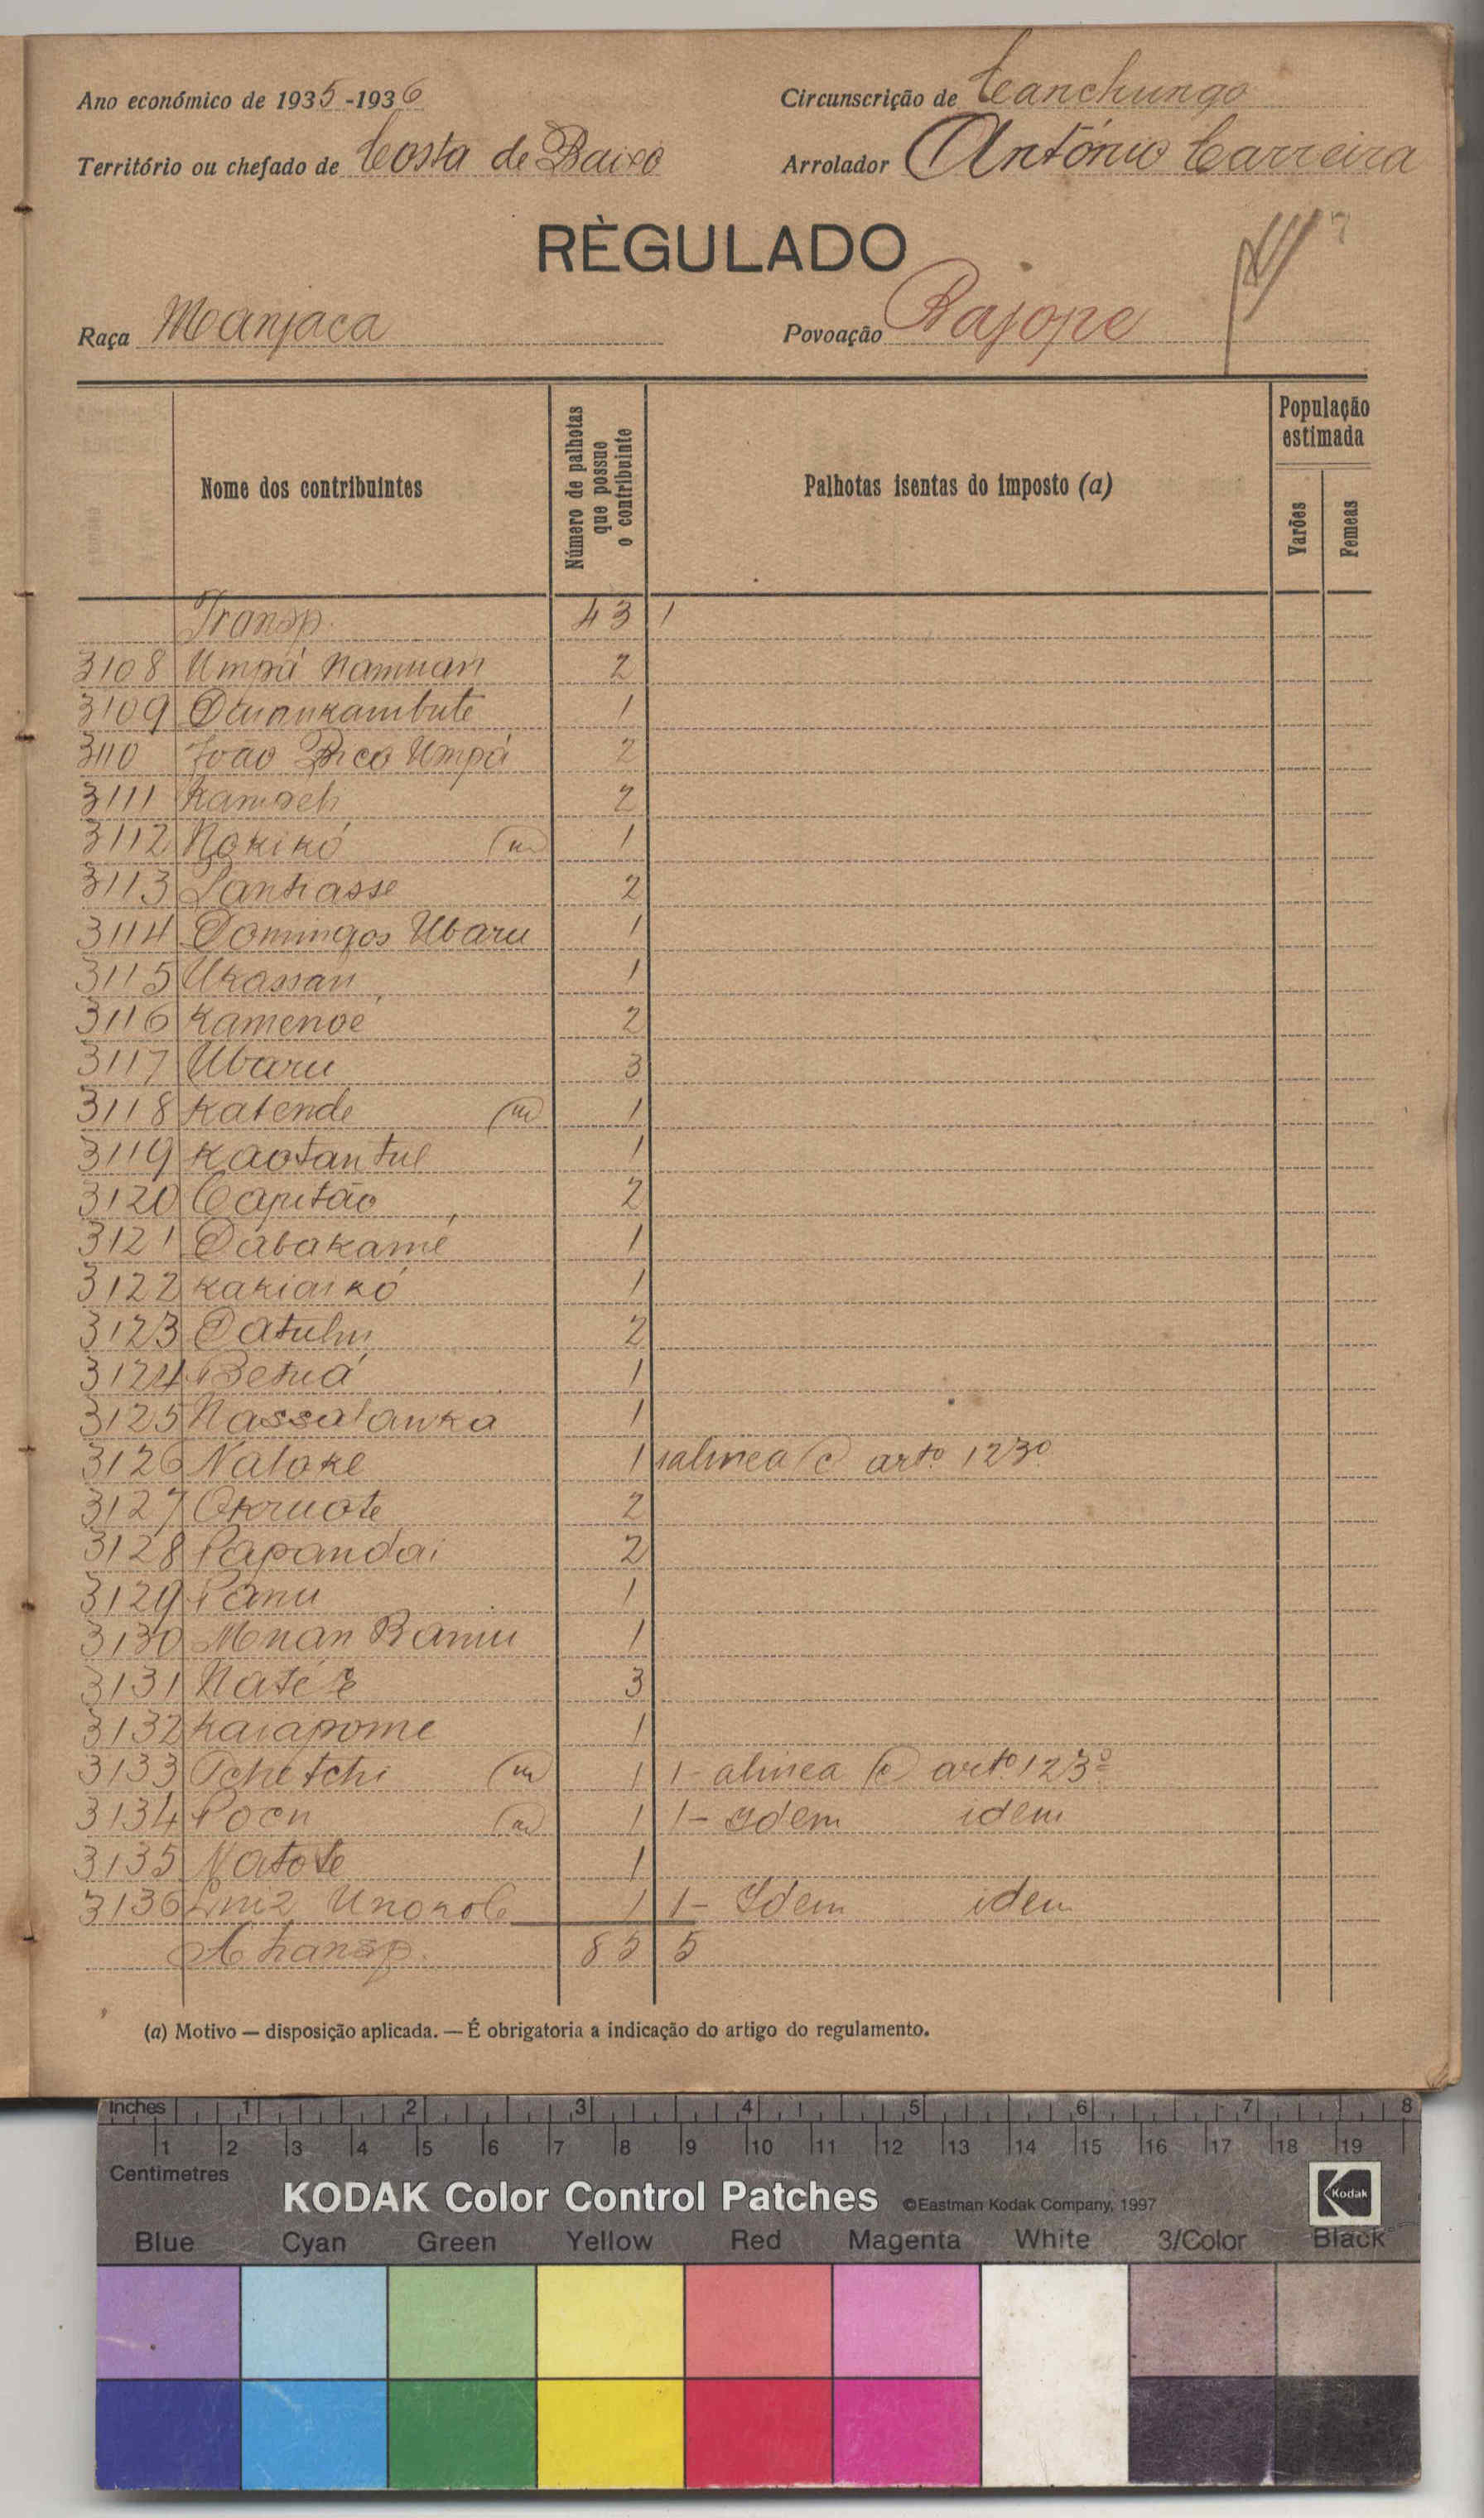 Ano económico de 1935-1936
Circunscrição de Canchungo
Território ou chefado de Costa de Baixo
Arrolador António Carreira
RÈGULADO
Raça Manjaca
Povoação Bajope
Nome dos contribuintes
Número de palhotas que possue o contribuinte
Palhotas isentas do imposto (a)
População estimada
Varões
Femeas
Transp. 43 1
3108 Umpá Namuan 2
3109 1
3110 João Umpá 2
3111 2
3112 Nokikó (m) 1
3113 2
3114 Domingos Ubaru 1
3115 Ukassan 1
3116 Kamenoé 2
3117 Ubaru 3
3118 Katende (m) 1
3119 Kaotantul 1
3120 Capitão 2
3121 Dabakamé 1
3122 1
3123 2
3124 Betuá 1
3125 1
3126 Naloke 1 1 alinea (c) artº 123º
3127 2
3128 Papandai 2
3129 Panu 1
3130 1
3131 3
3132 Kaiapome 1
3133 Tchetchi (m) 1 1- alinea (c) artº 123º
3134 Pocn (m) 1 1- Idem idem
3135 Natote 1
3136 1 1- Idem idem
A transp. 85 5
(a) Motivo — disposição aplicada. — É obrigatoria a indicação do artigo do regulamento.
Inches 1 2 3 4 5 6 7 8
1 2 3 4 5 6 7 8 9 10 11 12 13 14 15 16 17 18 19
Centimetres
KODAK Color Control Patches ©Eastman Kodak Company, 1997 Kodak
Blue Cyan Green Yellow Red Magenta White 3/Color Black